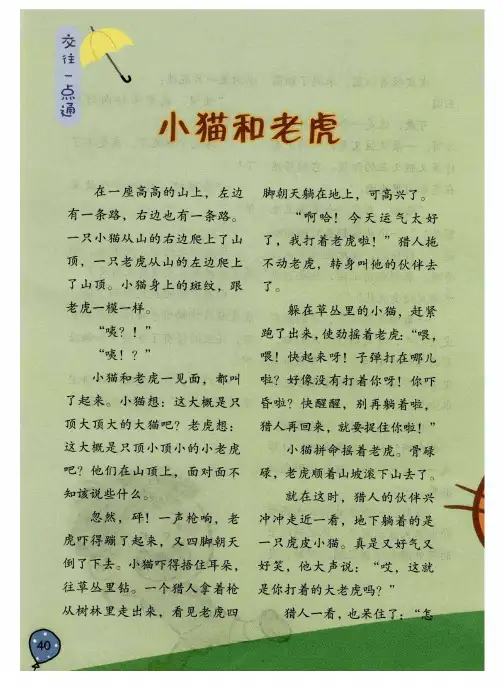 交往一点通
小猫和老虎
在一座高高的山上，左边
有一条路，右边也有一条路。
一只小猫从山的右边爬上了山
顶，一只老虎从山的左边爬上
了山顶。小猫身上的斑纹，跟
老虎一模一样。
“咦？！”
“咦！？”
小猫和老虎一见面，都叫
了起来。小猫想：这大概是只
顶大顶大的大猫吧？老虎想：
这大概是只顶小顶小的小老虎
吧？他们在山顶上，面对面不
知该说些什么。
忽然，砰！一声枪响，老
虎吓得蹦了起来，又四脚朝天
倒了下去。小猫吓得捂住耳朵，
往草丛里钻。一个猎人拿着枪
从树林里走出来，看见老虎四
脚朝天躺在地上，可高兴了。
“啊哈！今天运气太好
了，我打着老虎啦！”猎人拖
不动老虎，转身叫他的伙伴去
了。
躲在草丛里的小猫，赶紧
跑了出来，使劲摇着老虎：“喂，
喂！快起来呀！子弹打在哪儿
啦？好像没有打着你呀！你吓
昏啦？快醒醒，别再躺着啦，
猎人再回来，就要捉住你啦！”
小猫拼命摇着老虎。骨碌
碌，老虎顺着山坡滚下山去了。
就在这时，猎人的伙伴兴
冲冲走近一看，地下躺着的是
一只虎皮小猫。真是又好气又
好笑，他大声说：“哎，这就
是你打着的大老虎吗？”
猎人一看，也呆住了：“怎
40